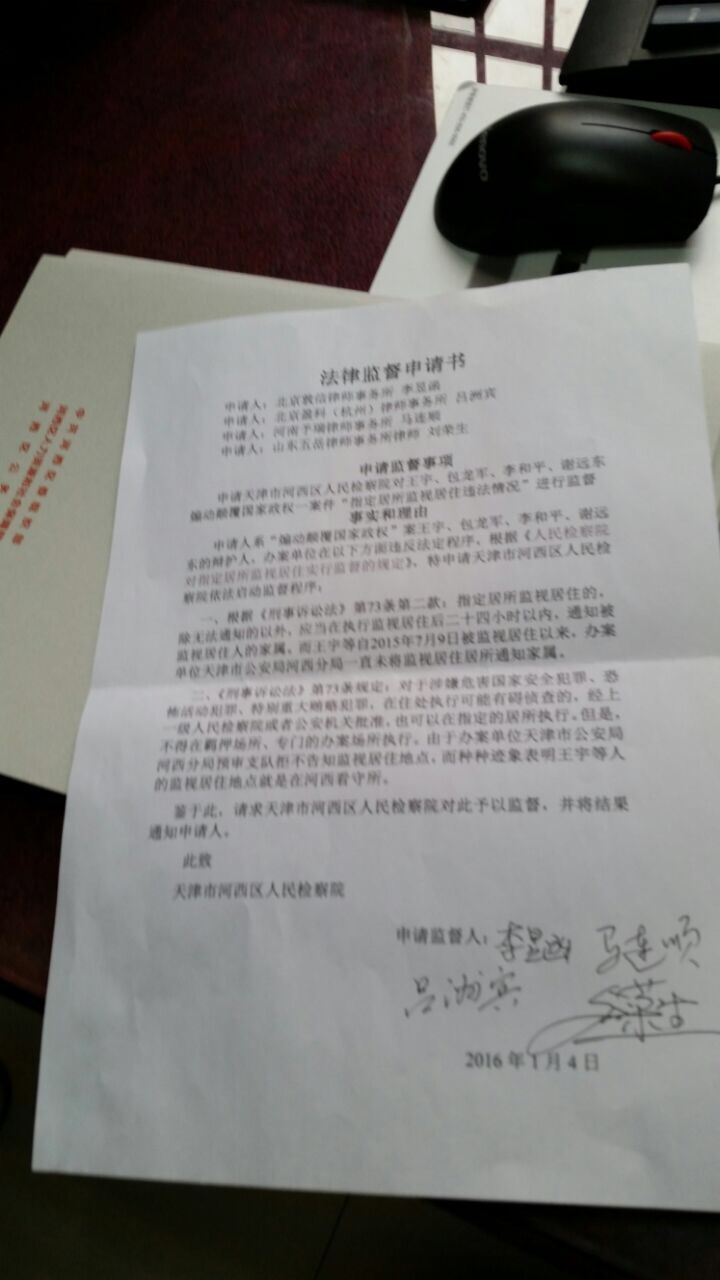 法律监督申请书
申请人：北京敦信律师事务所 李昱函
申请人：北京盈科（杭州）律师事务所 吕洲宾
申请人：河南予瑞律师事务所 马连顺
申请人：山东五岳律师事务所律师 刘荣生
申请监督事项
申请天津市河西区人民检察院对王宇、包龙军、李和平、谢远东
煽动颠覆国家政权一案件“指定居所监视居住违法情况”进行监督
事实和理由
申请人系“煽动颠覆国家政权”案王宇、包龙军、李和平、谢远
东的辩护人，办案单位在以下方面违反法定程序，根据《人民检察院
对指定居所监视居住实行监督的规定》，特申请天津市河西区人民检
察院依法启动监督程序：
一、根据《刑事诉讼法》第73条第二款：指定居所监视居住的，
除无法通知的以外，应当在执行监视居住后二十四小时以内，通知被
监视居住人的家属。而王宇等自2015年7月9日被监视居住以来，办案
单位天津市公安局河西分局一直未将监视居住居所通知家属。
二、《刑事诉讼法》第73条规定：对于涉嫌危害国家安全犯罪、恐
怖活动犯罪、特别重大贿赂犯罪，在住处执行可能有碍侦查的，经上
一级人民检察院或者公安机关批准，也可以在指定的居所执行。但是，
不得在羁押场所、专门的办案场所执行。由于办案单位天津市公安局
河西分局预审支队拒不告知监视居住地点，而种种迹象表明王宇等人
的监视居住地点就是在河西看守所。
鉴于此，请求天津市河西区人民检察院对此予以监督，并将结果
通知申请人。
此致
天津市河西区人民检察院
申请监督人：李昱函 马连顺
吕洲宾 刘荣生
2016年1月4日